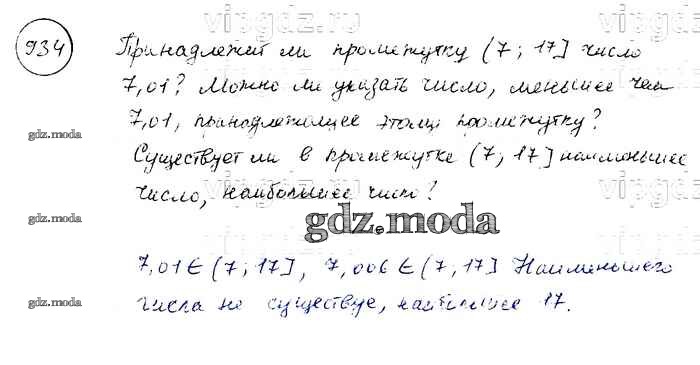 vipgdz.ru
vipgdz.ru
934
Принадлежит ли промежутку (7; 17] число
7,01? Можно ли указать число, меньшее чем
vipgdz.ru
gdz.moda
7,01, принадлежащее этому промежутку?
Существует ли в промежутке (7; 17] наименьшее
vipgdz.ru
число, наибольшее число?
gdz.moda
gdz.moda
7,01 ∈ (7; 17], 7,006 ∈ (7; 17] Наименьшего
gdz.moda
числа не существуе, наибольшее 17.